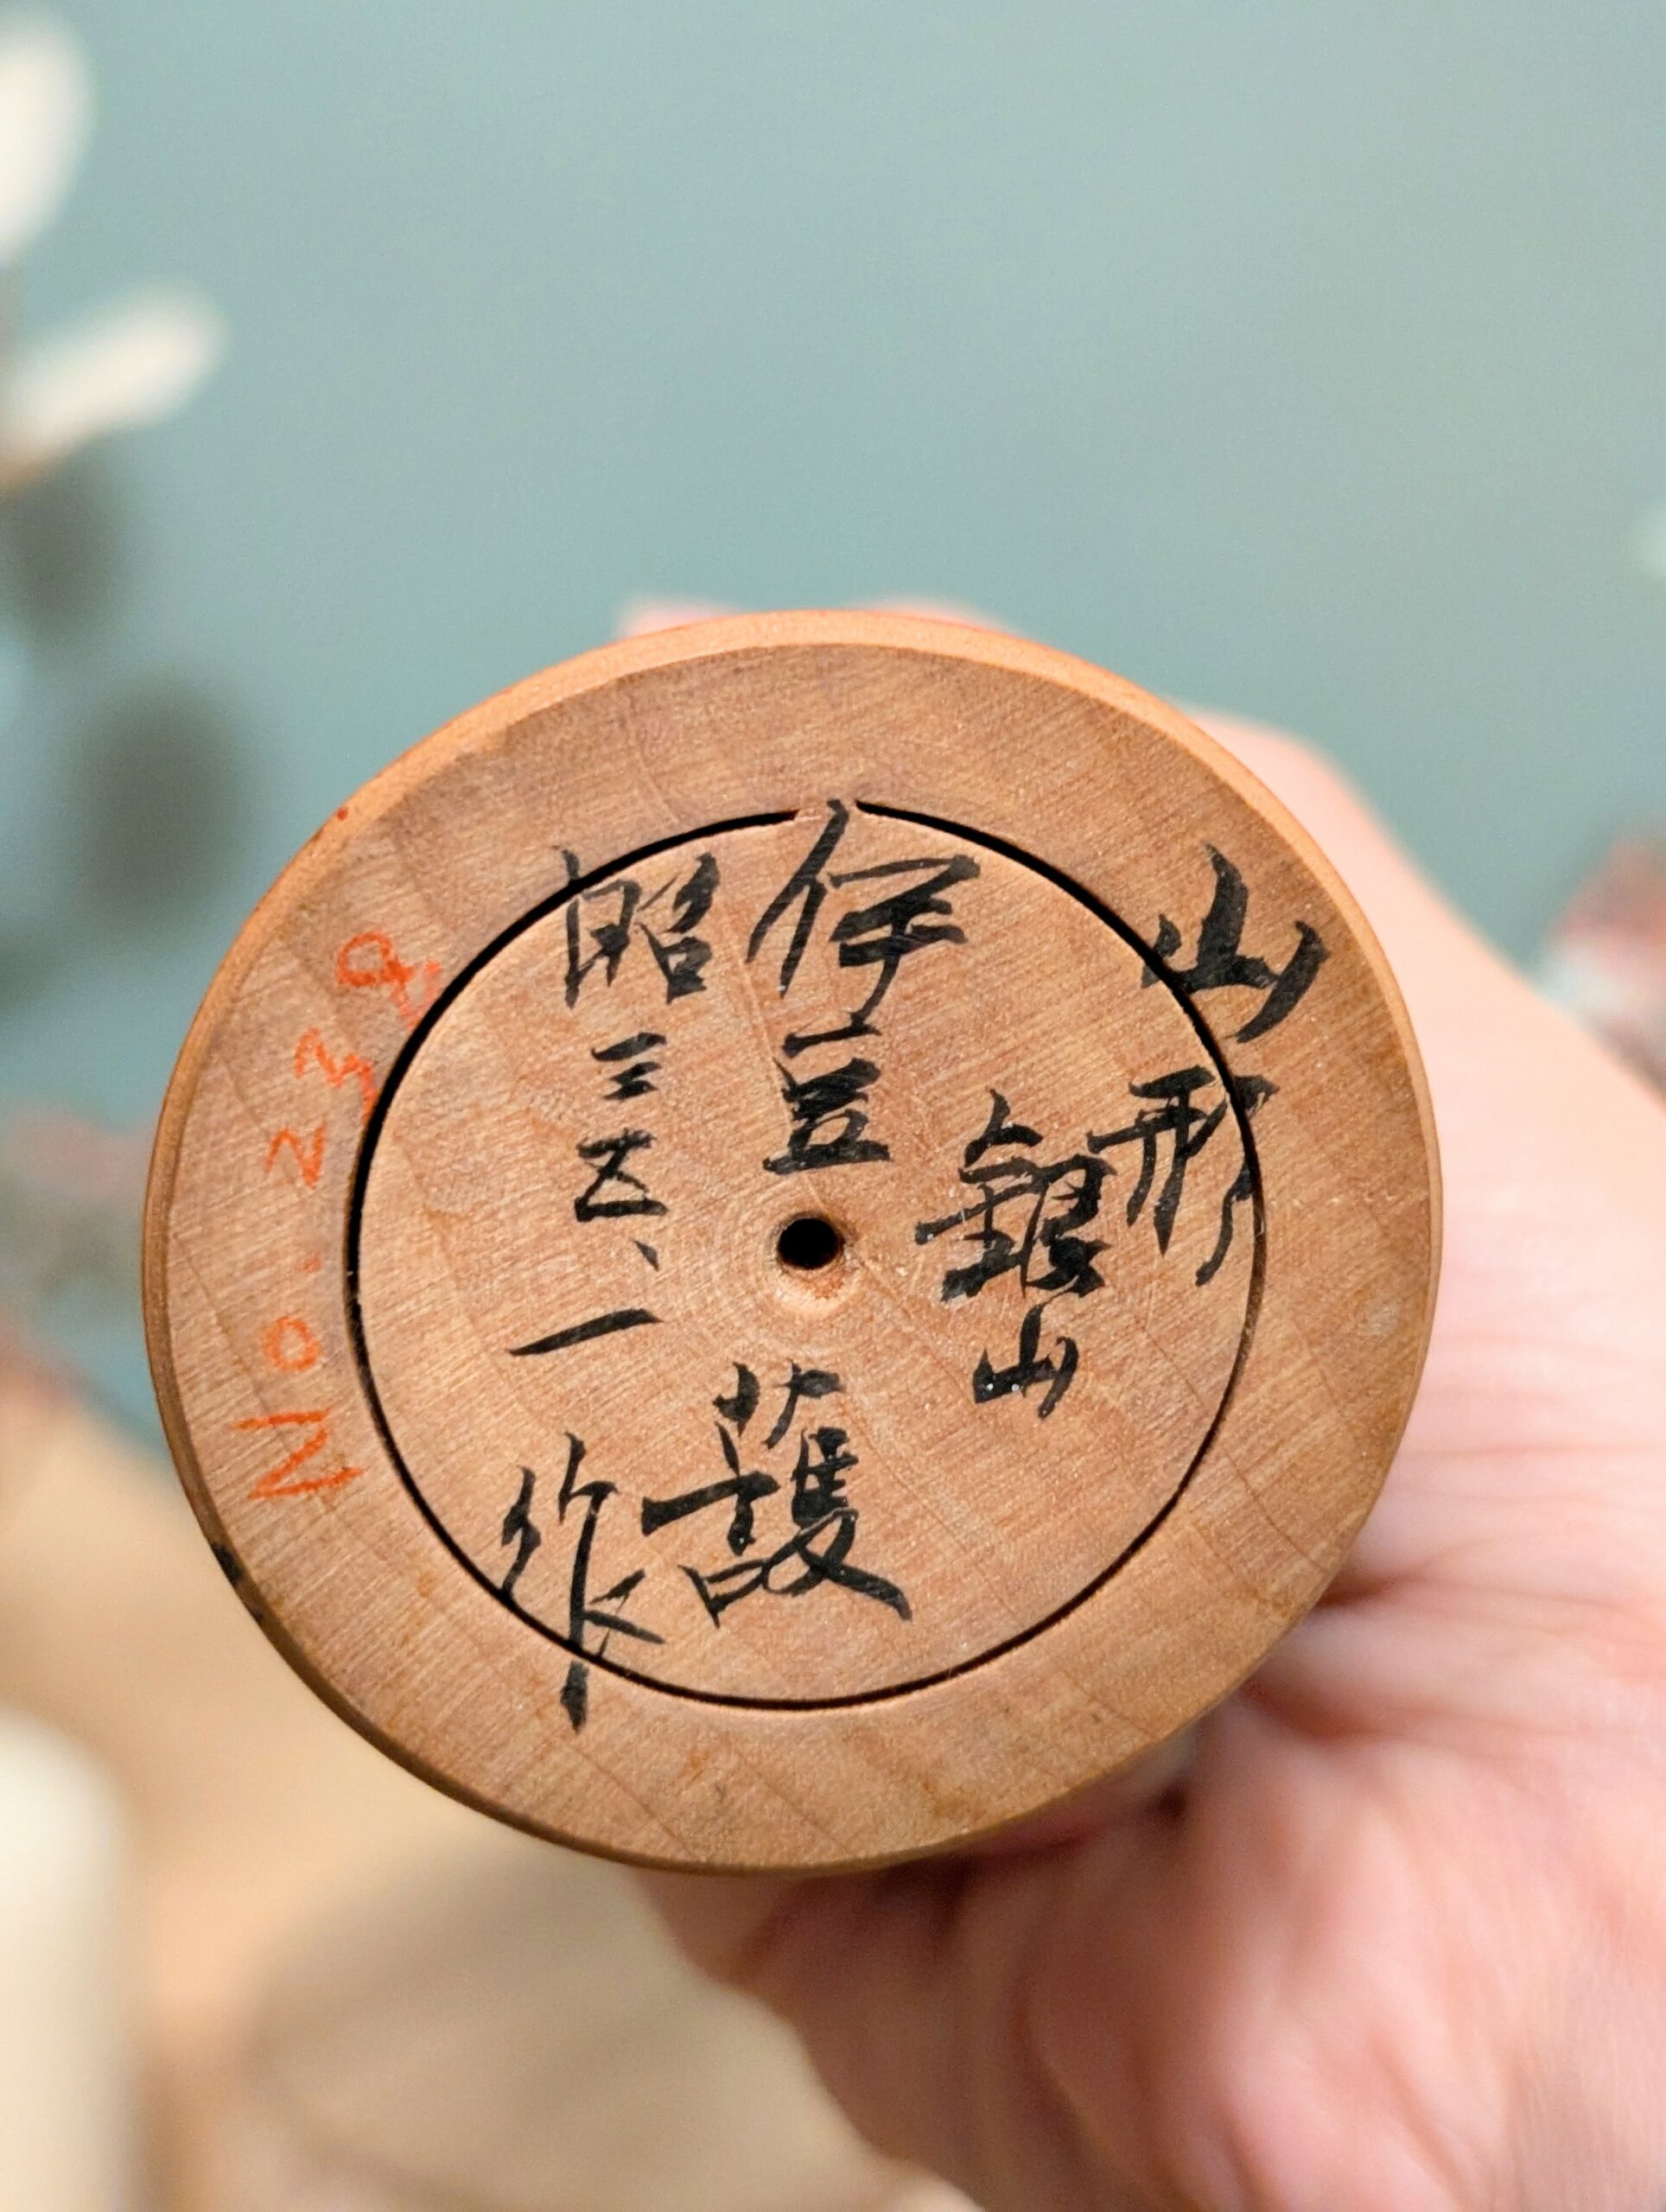 山形
銀山
伊豆護
昭三五、一作
No.